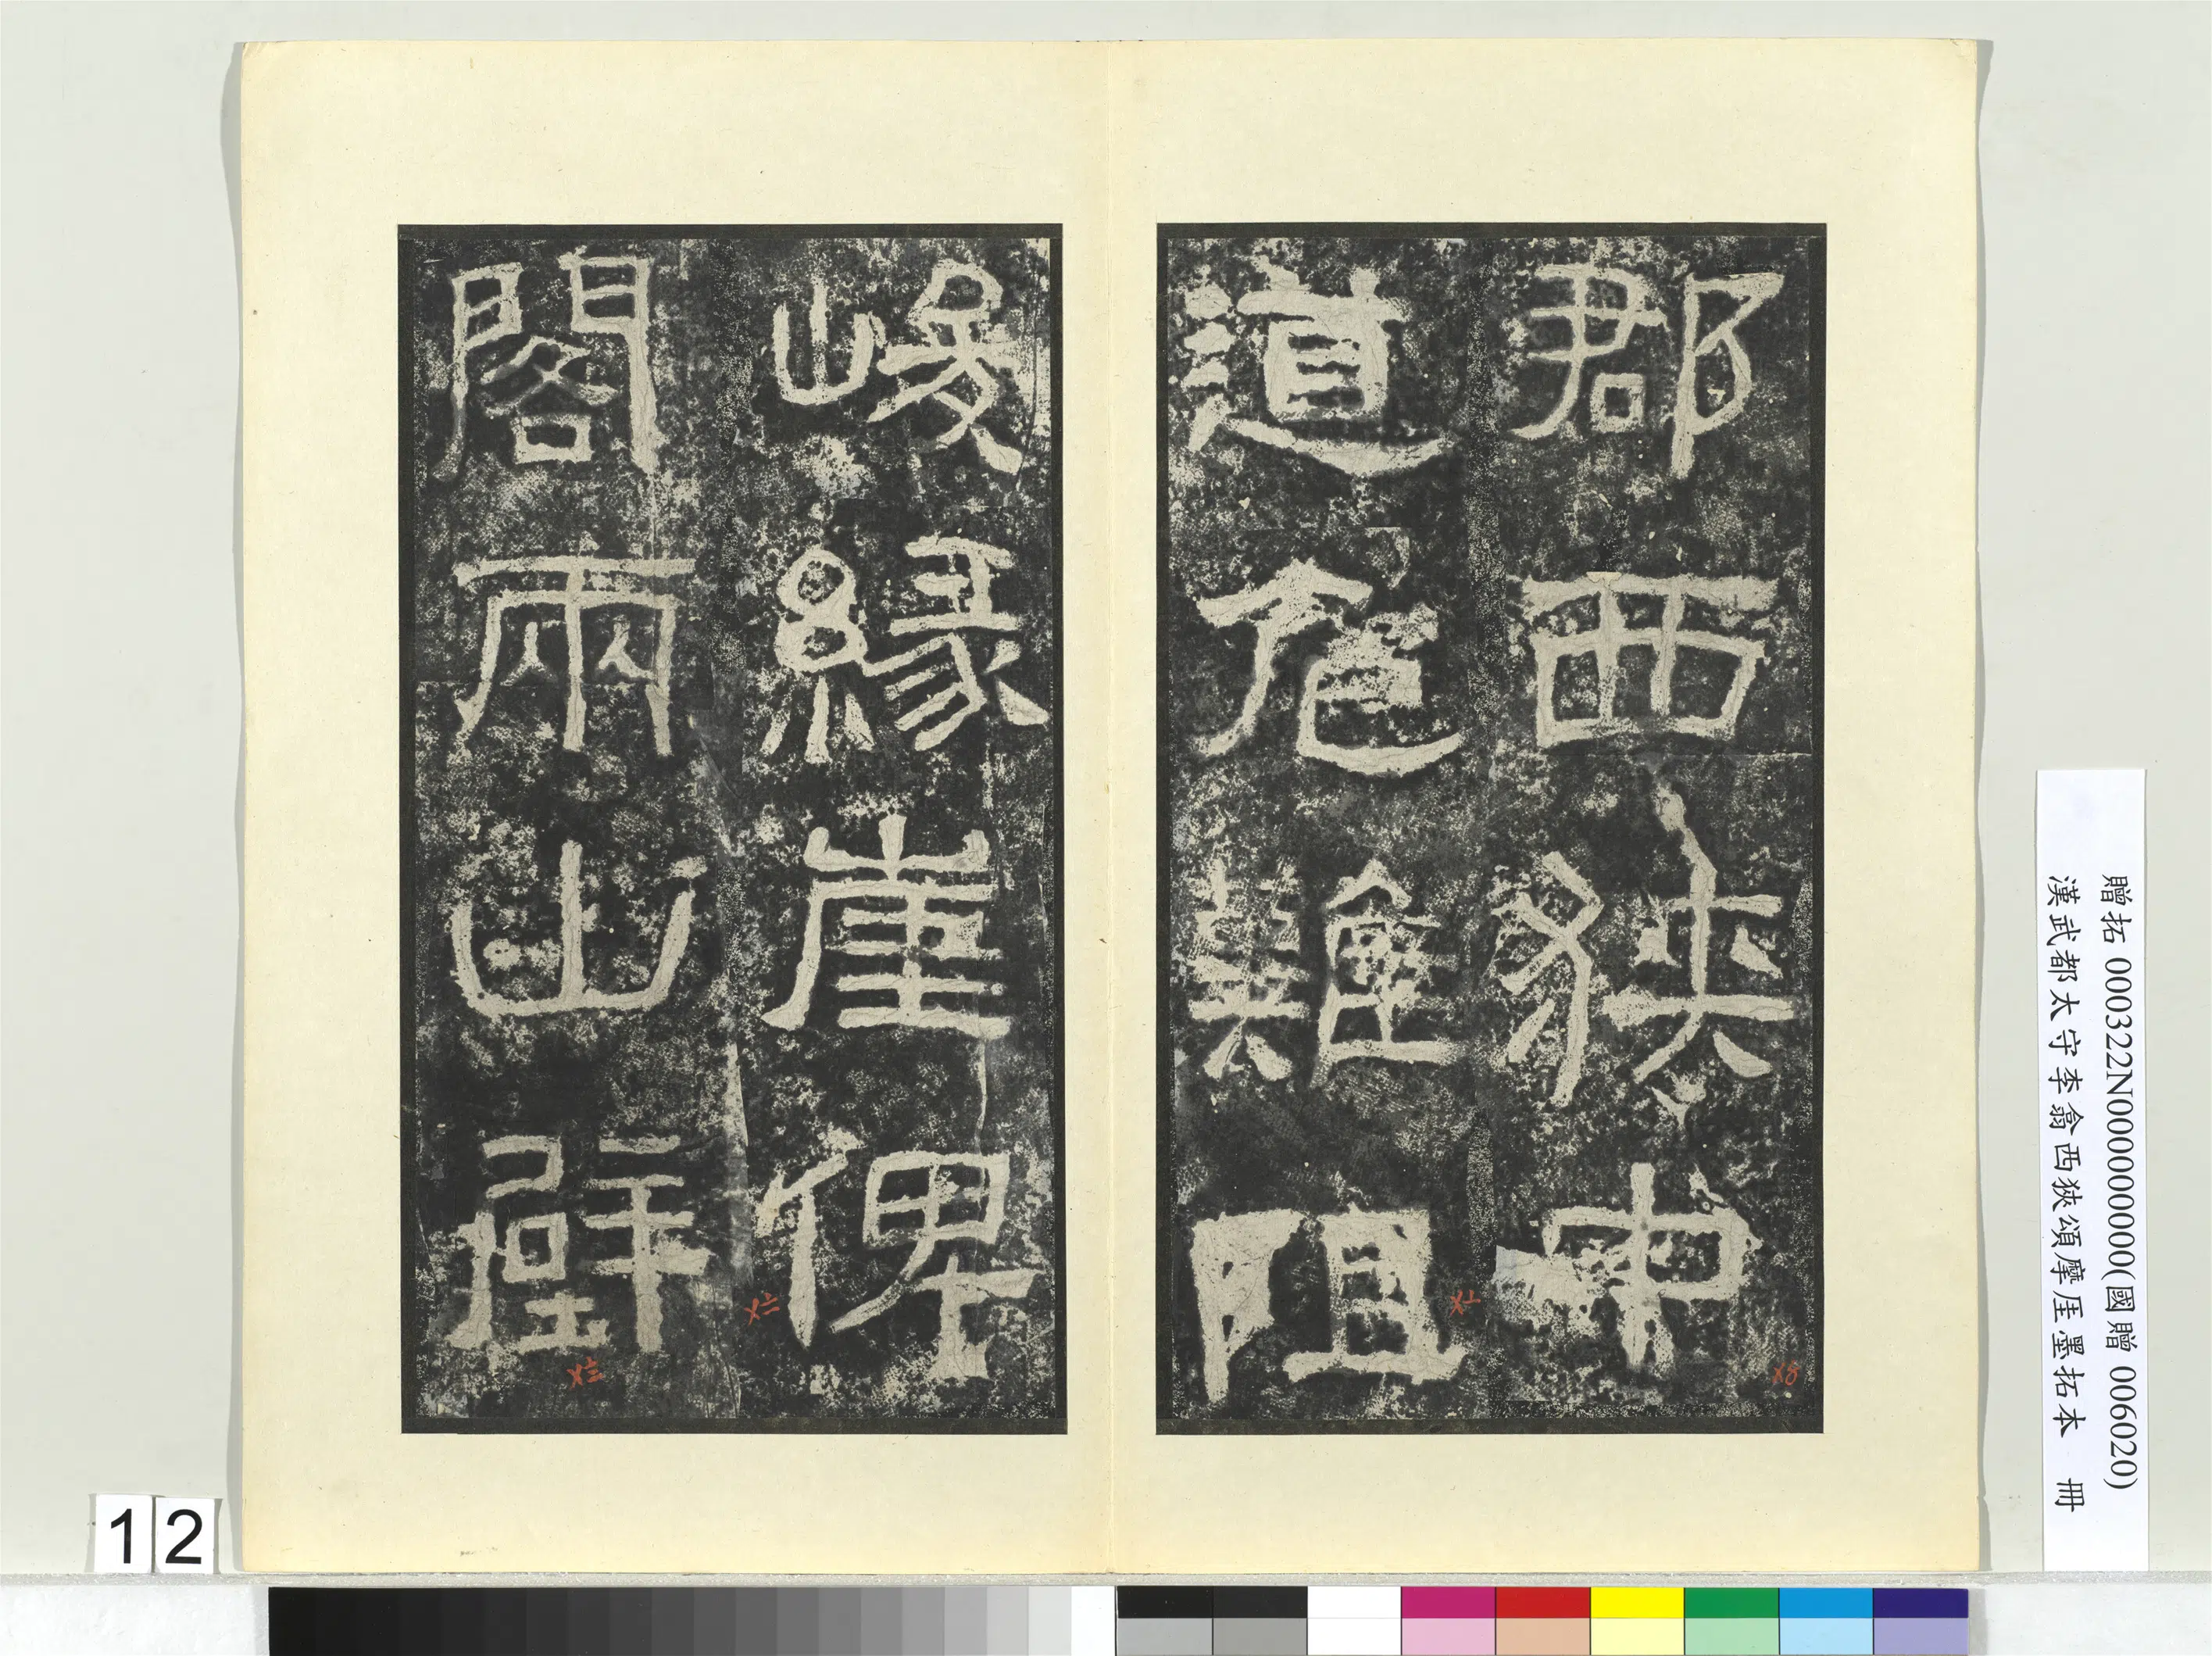 郡西狹中
道危難阻
峻緣崖俾
閣兩山壁
贈拓 000322N000000000(國贈 006020)
漢武都太守李翕西狹頌摩厓墨拓本 冊
12